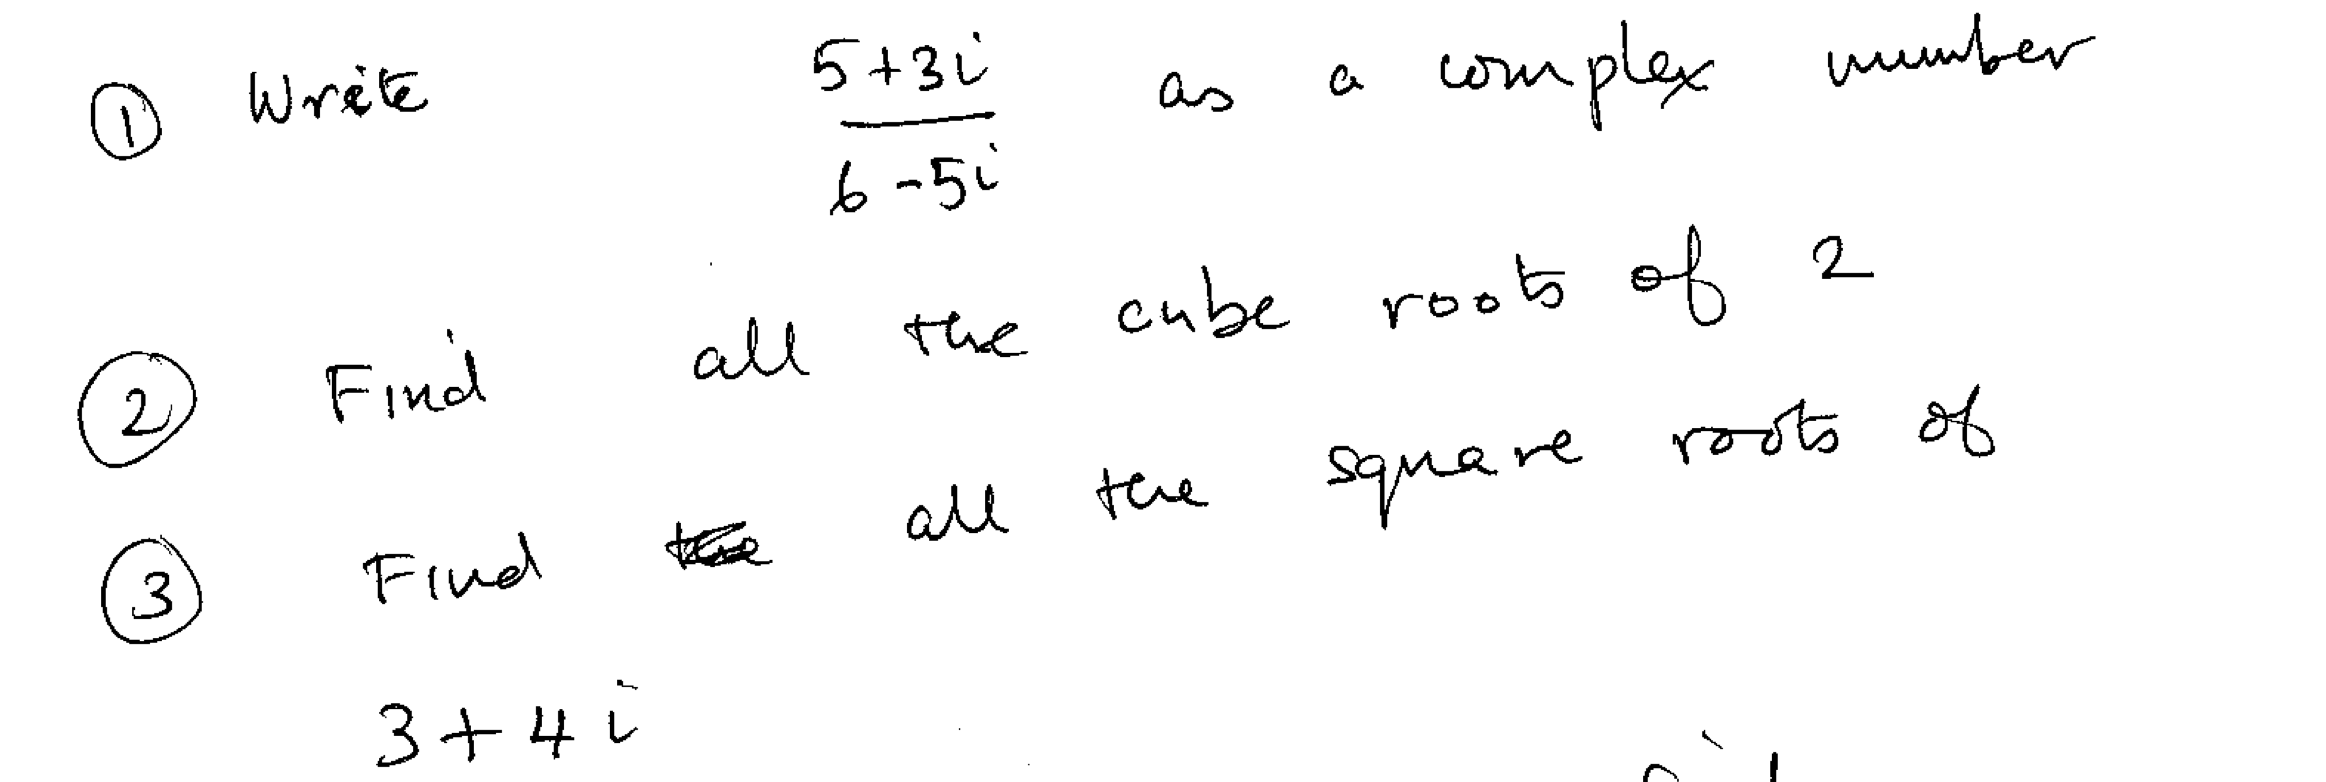 ① Write 5+3i / 6-5i as a complex number
② Find all the cube roots of 2
③ Find all the square roots of
3+4i